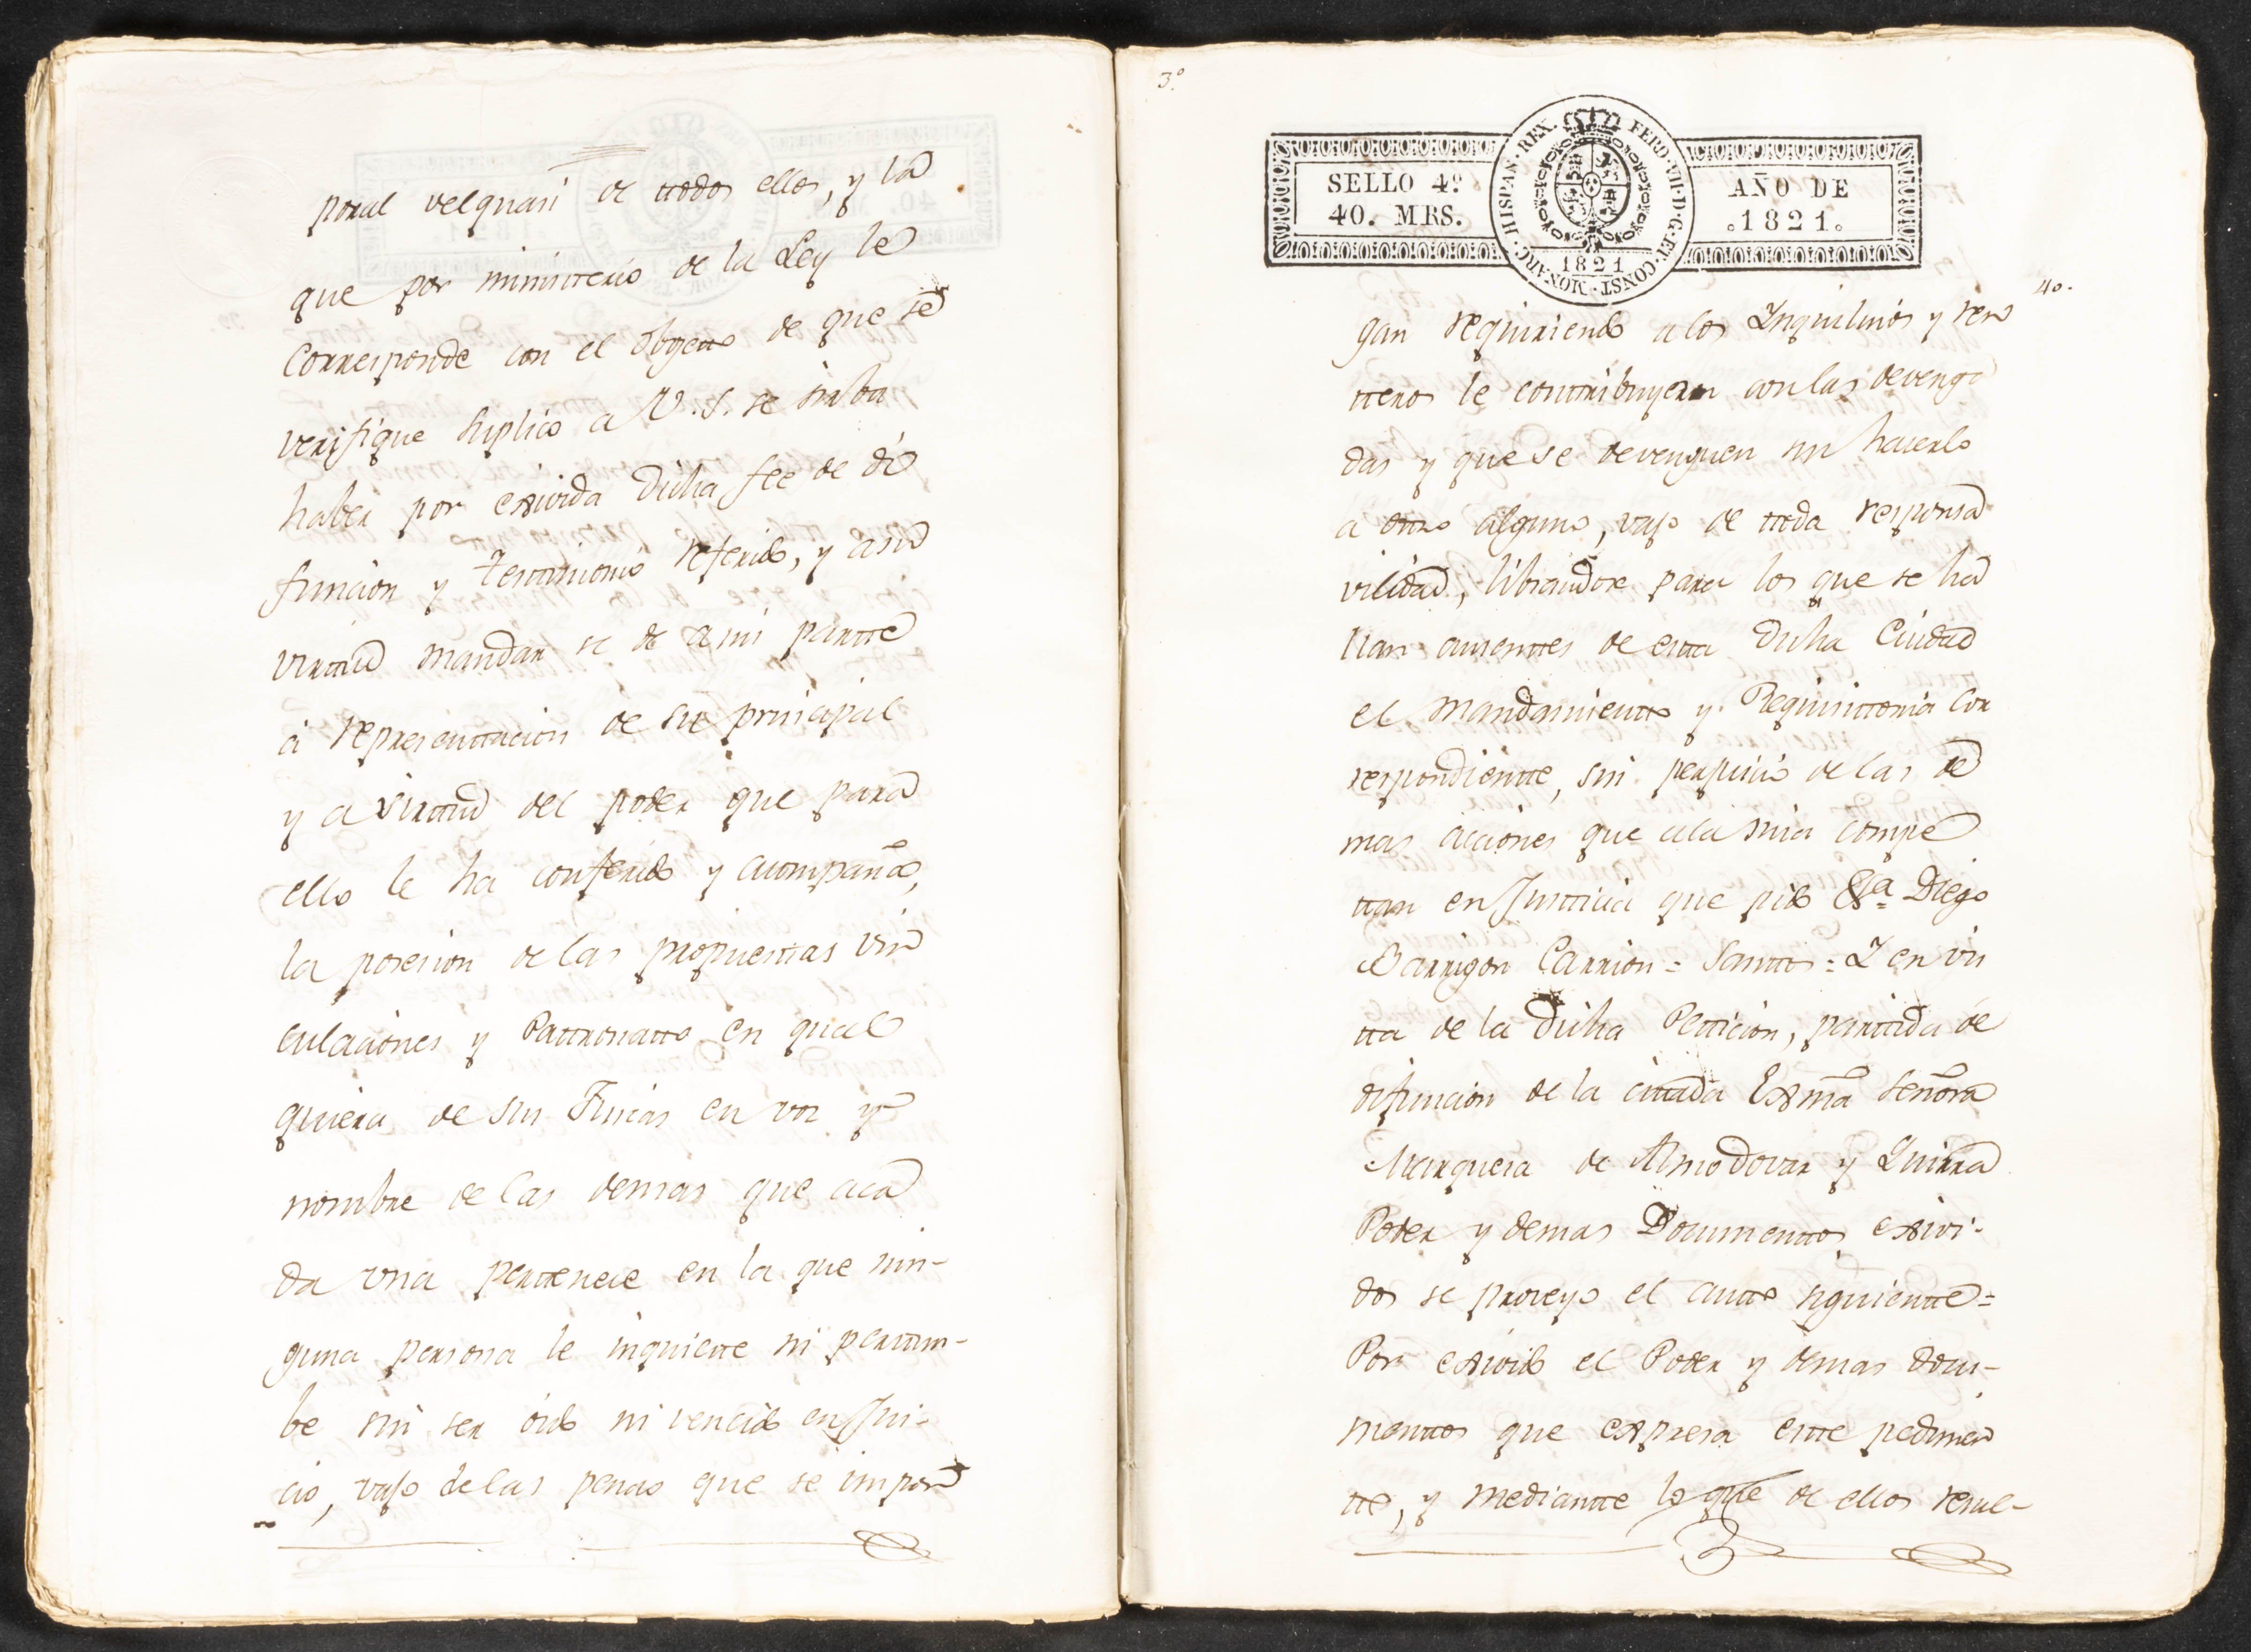 poral velquasi de ttodos ellos, y la
que por ministterio de la Ley le
corresponde con el obgetto de que se
verifique suplico a V.S. se sirba
haber por exivida dicha fee de di
funcion y Testtimonio referido, y a su
virttud mandar se de a mi partte
á representtacion de su principal
y a virttud del poder que para
ello le ha conferido y acompaña,
la posesion de las propuesttas vin
culaciones y Pattronatto en qual
quiera de sus Fincas en voz y
nombre de las demas que a ca
da una perttenece en la que nin-
guna persona le inquiette ni perttur-
be sin ser oido ni vencido en Jui-
cio, vajo de las penas que se impon
3º
SELLO 4º
40. MRS.
HISPAN. REX. FERD. VII. D. G. ET. CONST. MONARC.
1821
AÑO DE
1821.
40.
gan requiriendo a los Ynquilinos y ren
tteros le conttribuyeran con las devenga
das y que se devenguen sin hacerlo
a ottro alguno, vajo de ttoda responsa
vilidad, librandose para los que se ha
llan ausenttes de estta dicha Ciudad
el mandamientto y Requisittoria cor
respondientte, sin perjuicio de las de
mas acciones que a la mia compe
ttan en Justticia que pido &ª Diego
Barrigon Carrion = Santtos = Y en vis
tta de la dicha Petticion, parttida de
difuncion de la cittada Exma Señora
Marquesa de Almodovar y Quirra
Poder y demas Documenttos exivi-
dos se proveyo el autto siguientte =
Por exivido el Poder y demas docu-
menttos que expresa estte pedimen
tto, y mediantte lo que de ellos resul-